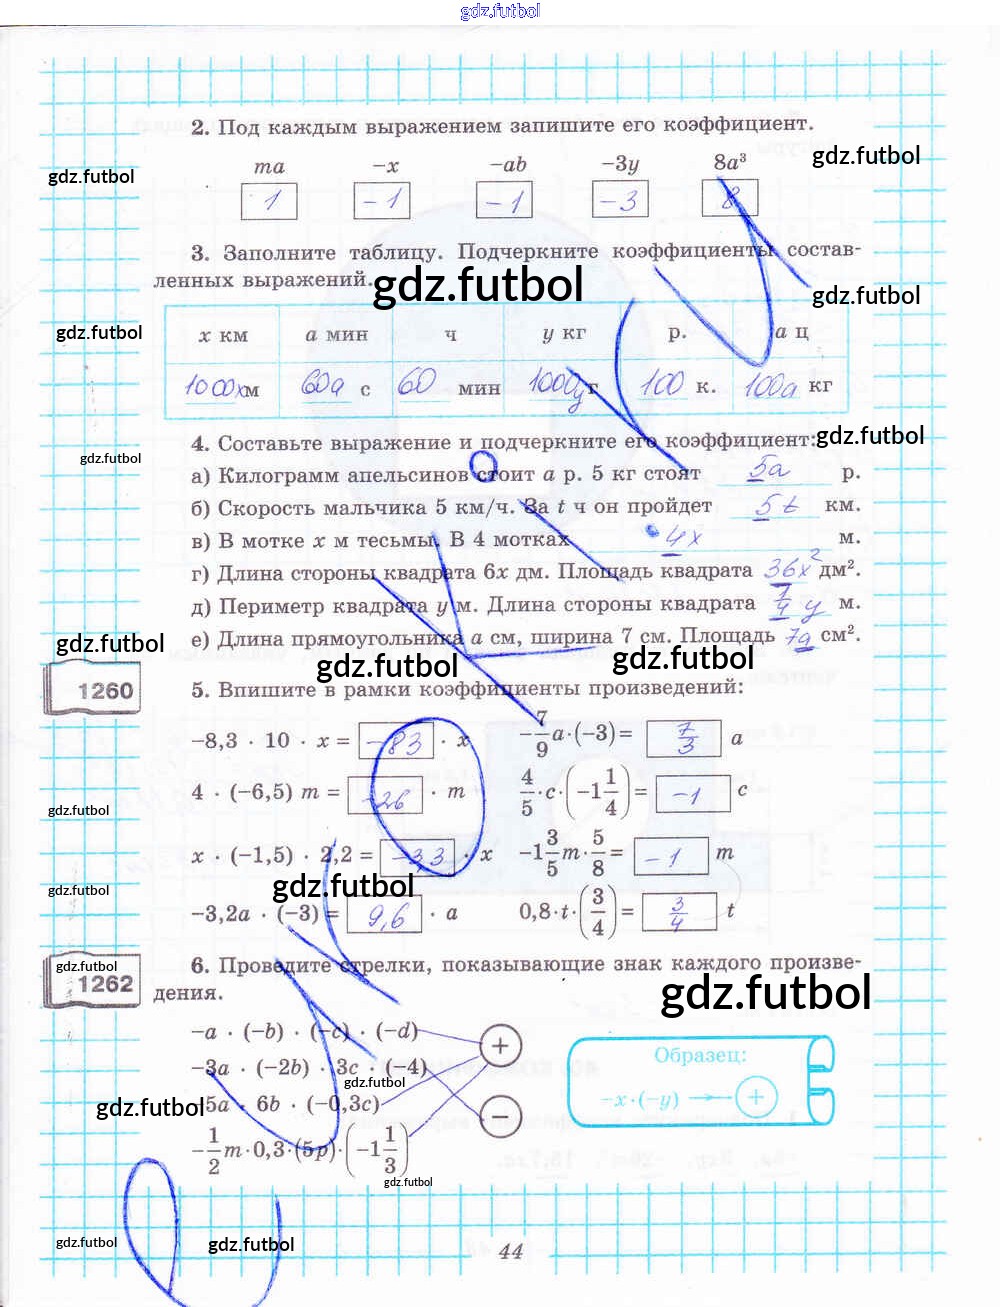 gdz.futbol
2. Под каждым выражением запишите его коэффициент.
gdz.futbol
ma −x −ab −3y 8a³
gdz.futbol
1 −1 −1 −3 8
3. Заполните таблицу. Подчеркните коэффициенты состав-
ленных выражений.
gdz.futbol
gdz.futbol
gdz.futbol
x км a мин ч y кг р. a ц
1000x м 60a с 60 мин 1000y г 100 к. 100a кг
4. Составьте выражение и подчеркните его коэффициент:
gdz.futbol
gdz.futbol
а) Килограмм апельсинов стоит a р. 5 кг стоят 5a р.
б) Скорость мальчика 5 км/ч. За t ч он пройдет 5t км.
в) В мотке x м тесьмы. В 4 мотках 4x м.
г) Длина стороны квадрата 6x дм. Площадь квадрата 36x² дм².
д) Периметр квадрата y м. Длина стороны квадрата 1/4 y м.
е) Длина прямоугольника a см, ширина 7 см. Площадь 7a см².
gdz.futbol
gdz.futbol
gdz.futbol
1260
5. Впишите в рамки коэффициенты произведений:
−8,3 · 10 · x = −83 · x −7/9 a·(−3) = 7/3 a
4 · (−6,5) m = −26 · m 4/5·c·(−1 1/4) = −1 c
gdz.futbol
x · (−1,5) · 2,2 = −3,3 · x −1 3/5 m · 5/8 = −1 m
gdz.futbol
gdz.futbol
−3,2a · (−3) = 9,6 · a 0,8·t·(3/4) = 3/4 t
6. Проведите стрелки, показывающие знак каждого произве-
дения.
gdz.futbol
1262
gdz.futbol
−a · (−b) · (−c) · (−d) +
Образец:
−3a · (−2b) · 3c · (−4)
gdz.futbol
−x·(−y) → +
5a · 6b · (−0,3c) −
gdz.futbol
−1/2 m·0,3·(5p)·(−1 1/3)
gdz.futbol
gdz.futbol
gdz.futbol
44